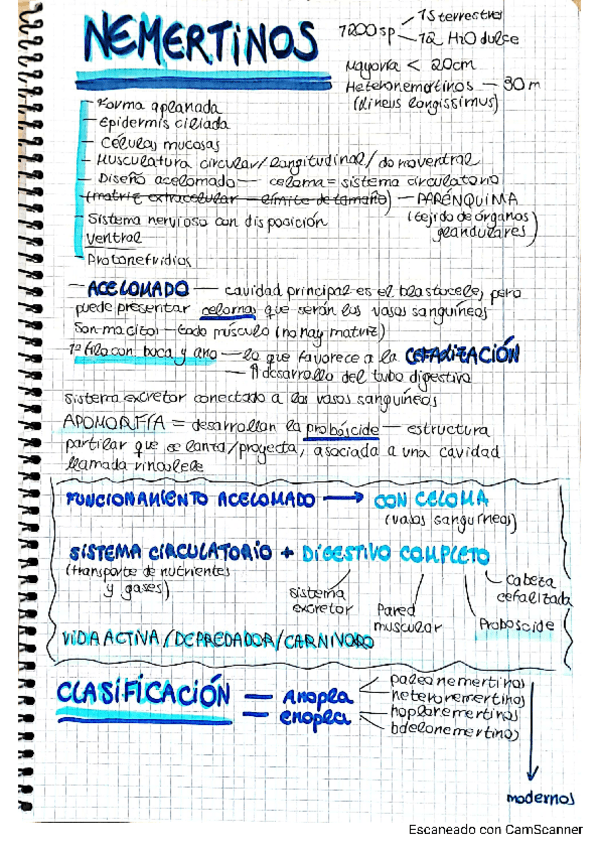 NEMERTINOS
1200 sp
15 terrestres
12 H2O dulce
Mayoría < 20cm
Heteronemertinos — 30m
(lineus longissimus)
- Forma aplanada
- Epidermis ciliada
- Células mucosas
- Musculatura circular/longitudinal/dorsoventral
- Diseño acelomado — celoma = sistema circulatorio
(matriz extracelular - límite de tamaño) — PARÉNQUIMA
(tejido de órganos glandulares)
- Sistema nervioso con disposición
ventral
- Protonefridios
- ACELOMADO — cavidad principal es el blastocele, pero
puede presentar celoma, que serán los vasos sanguíneos
Son macizos — todo músculo (no hay matriz)
1º filo con boca y ano — lo que favorece a la CEFALIZACIÓN
— Al desarrollo del tubo digestivo
Sistema excretor conectado a los vasos sanguíneos
APOMORFÍA = desarrollan la probóscide — estructura
que se lanza/proyecta, asociada a una cavidad
llamada rincocele
FUNCIONAMIENTO ACELOMADO → CON CELOMA
(vasos sanguíneos)
SISTEMA CIRCULATORIO + DIGESTIVO COMPLETO
(transporte de nutrientes
y gases)
sistema
excretor
Pared
muscular
Cabeza
cefalizada
Proboscide
VIDA ACTIVA/DEPREDADOR/CARNIVORO
CLASIFICACIÓN
— Anopla
paleonemertinos
heteronemertinos
— enopla
hoplonemertinos
bdelonemertinos
modernos
Escaneado con CamScanner